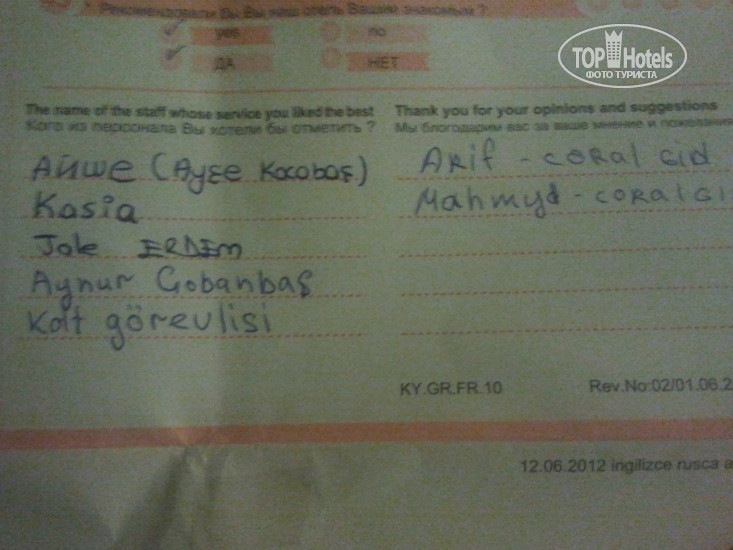 Рекомендовали Вы наш отель Вашим знакомым ?
yes no
ДА НЕТ
TOP Hotels
ФОТО ТУРИСТА
The name of the staff whose service you liked the best
Кого из персонала Вы хотели бы отметить ?
Айше (Ayşe Kocobaş)
Kasia
Jale ERDEM
Aynur Çobanbaş
Kat görevlisi
Thank you for your opinions and suggestions
Мы благодарим вас за ваше мнение и пожелания
Arif - coral gid
Mahmyd - coral gi
KY.GR.FR.10 Rev.No:02/01.06.2
12.06.2012 ingilizce rusca a